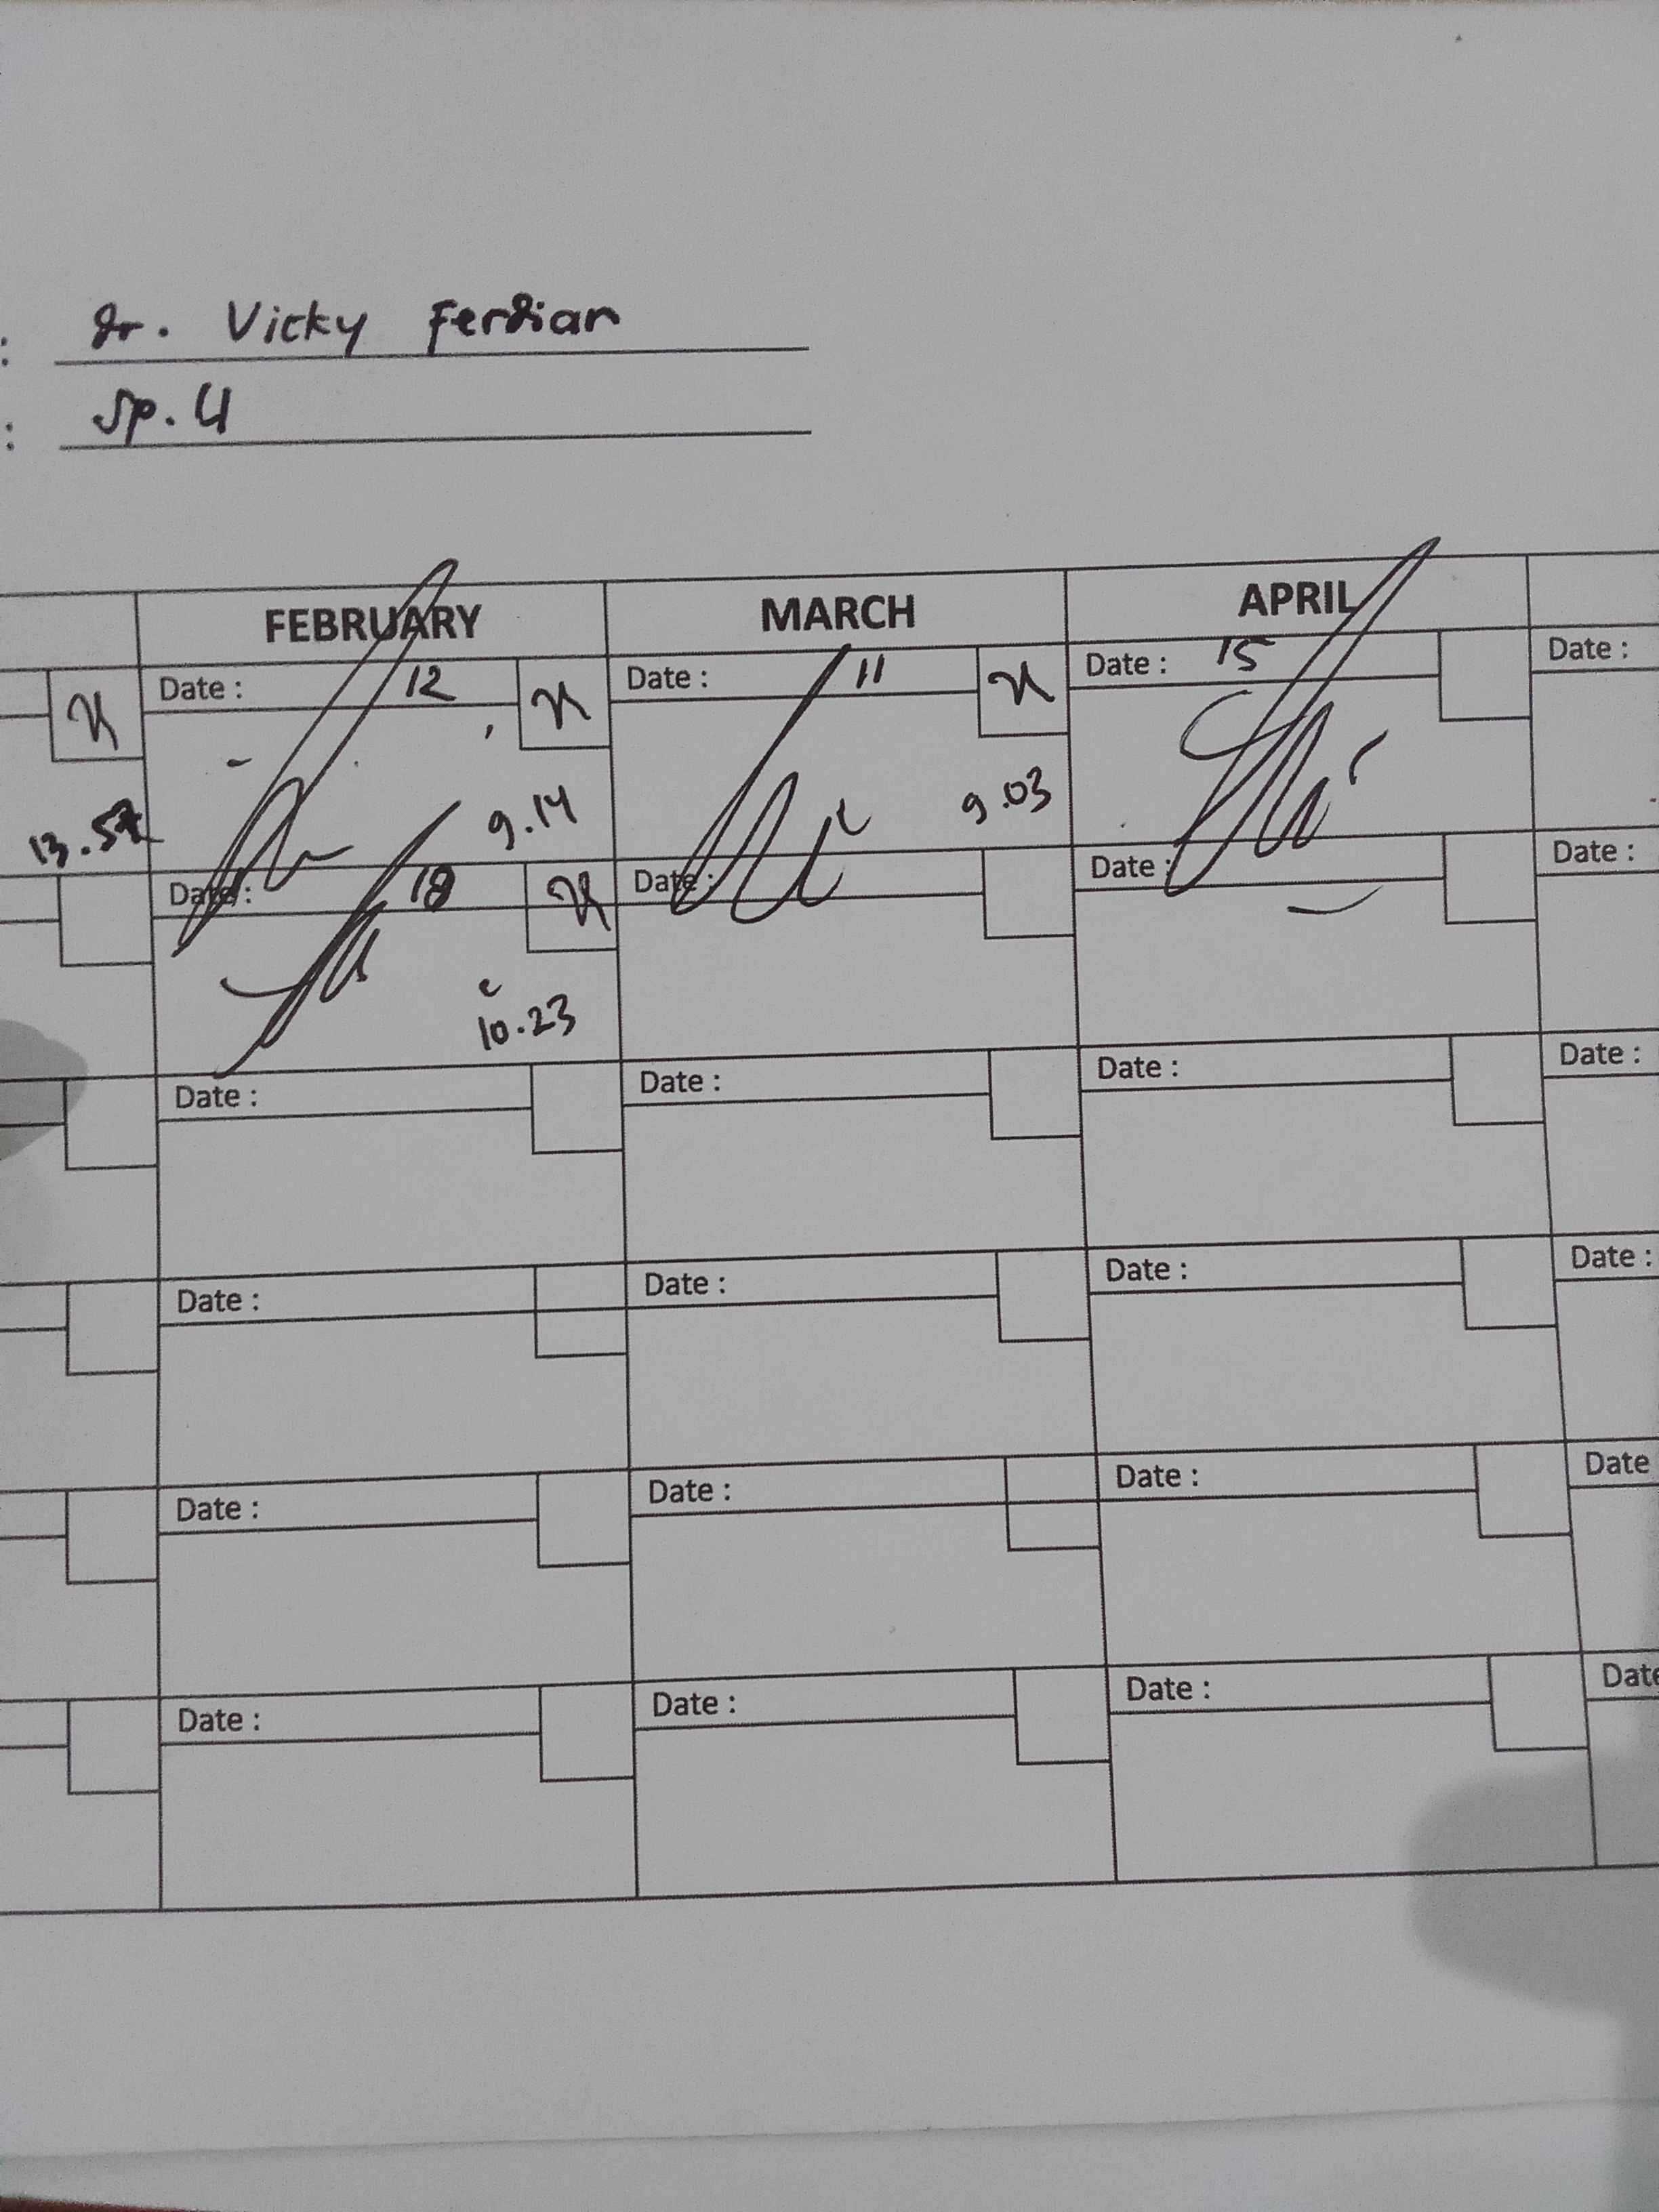 : dr. Vicky Ferdian
: Sp. U
FEBRUARY MARCH APRIL
Date : 12 Date : 11 Date : 15 Date :
13.57 9.14 9.03
Date : 18 Date : Date : Date :
10.23
Date : Date : Date : Date :
Date : Date : Date : Date :
Date : Date : Date : Date
Date : Date : Date : Date